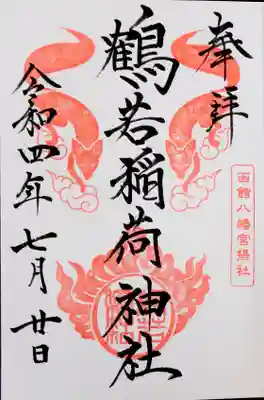 奉拝
函館八幡宮摂社
鶴若稲荷神社
令和四年七月廿日